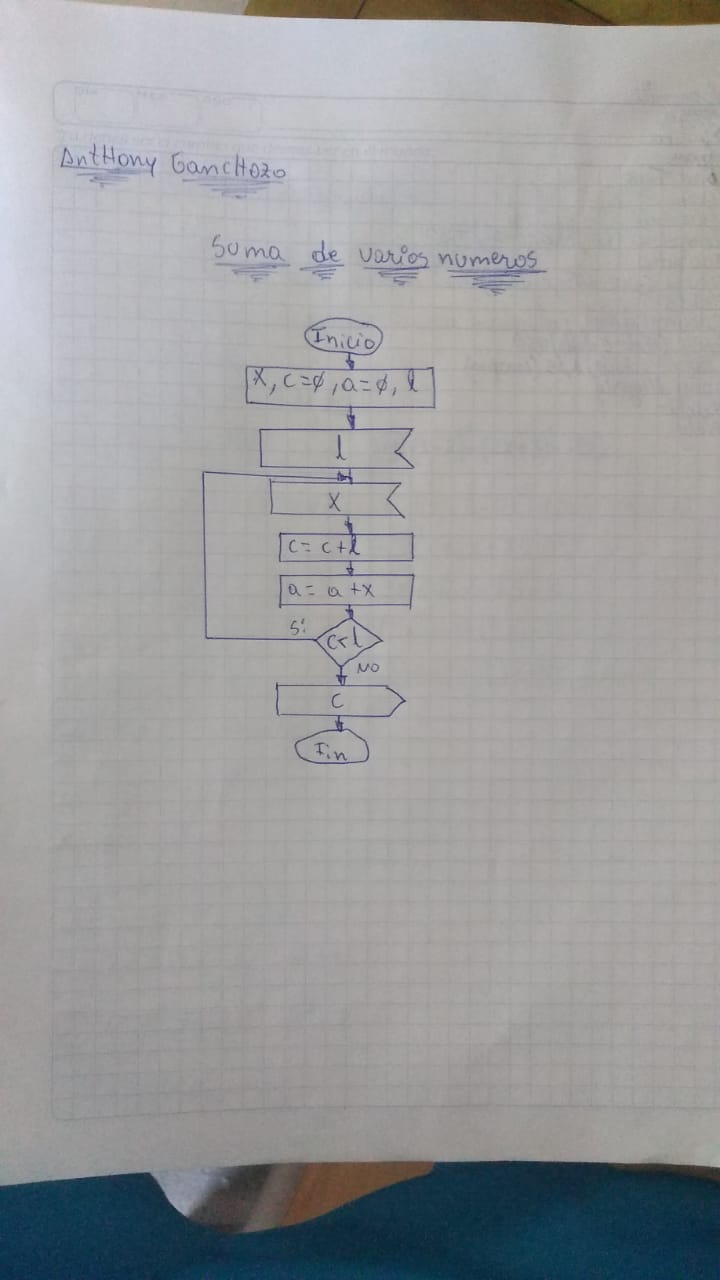 AntHony GancHozo
Suma de varios numeros
Inicio
X, c=ø, a=ø, l
l
X
c= c+l
a= a+x
Si
c<l
NO
C
Fin